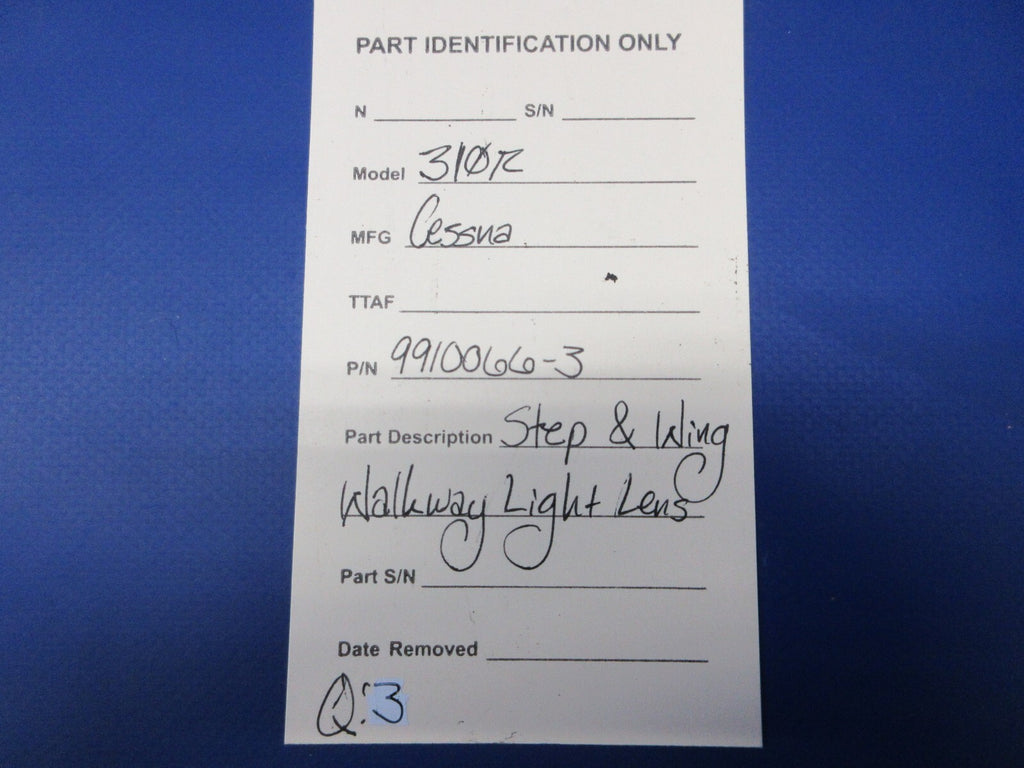 PART IDENTIFICATION ONLY
N S/N
Model 310R
MFG Cessna
TTAF
P/N 9910066-3
Part Description Step & Wing
Walkway Light Lens
Part S/N
Date Removed
Q:3